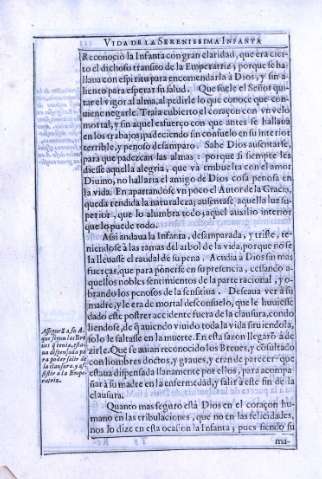 VIDA DE LA SERENISSIMA INFANTA
Reconociò la Infanta con gran claridad, que era cier-
to el dichoso transito de la Emperatriz; porque se ha-
llaua con espiritu para encomendarla à Dios, y sin a-
liento para esperar su salud. Que suele el Señor qui-
tar el vigor al alma, al pedirle lo que conoce que con-
uiene negarle. Traìa cubierto el coraçon con vn velo
mortal, y sin aquel esfuerço con que antes se hallaua
en los trabajos padeciendo sin consuelo en su interior
terrible, y penoso desamparo. Sabe Dios ausentarse,
para que padezcan las almas: porque si siempre les
diesse aquella alegria, que và embuelta con el amor
Diuino, no hallaria el amigo de Dios cosa penosa en
la vida. En apartandose vn poco el Autor de la Gracia,
queda rendida la naturaleza; ausentase aquella luz su-
perior, que lo alumbra todo; aquel auxilio interior
que lo puede todo.
Assi andaua la Infanta, desamparada, y triste, te-
niendose à las ramas del arbol de la vida, porque no se
la lleuasse el raudal de su pena. Acudia à Dios sin mas
fuerças, que para ponerse en su presencia, cessando a-
quellos nobles sentimientos de la parte racional, y o-
brando los penosos de la sensitiua. Deseaua ver à su
madre, y le era de mortal desconsuelo, que le huuiesse
dado este postrer accidente fuera de la clausura, condo
liendose, de q̃ auiendo viuido toda la vida siruiendola,
solo le faltasse en la muerte. En esta sazon llegarõ à de-
zirle. Que se auian reconocido los Breues, y consultado
con hombres doctos, y graues, y eran de parecer: que
estaua dispensada llanamente por ellos, para acompa-
sar à su madre en la enfermedad, y salir à este fin de la
clausura.
Quanto mas seguro està Dios en el coraçon hu-
mano en las tribulaciones, que no en las felicidades,
nos lo dize en esta ocasiõ la Infanta; pues siendo su
ma-
Asseguran à su A.